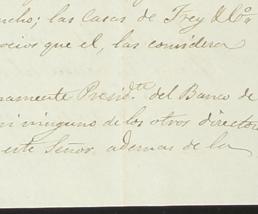 ucho; las Casas de Frey & Co.
ocios que el, las considera
namente Presid.te del Banco de
ni ninguno de los otros directo
este Señor, ademas de la